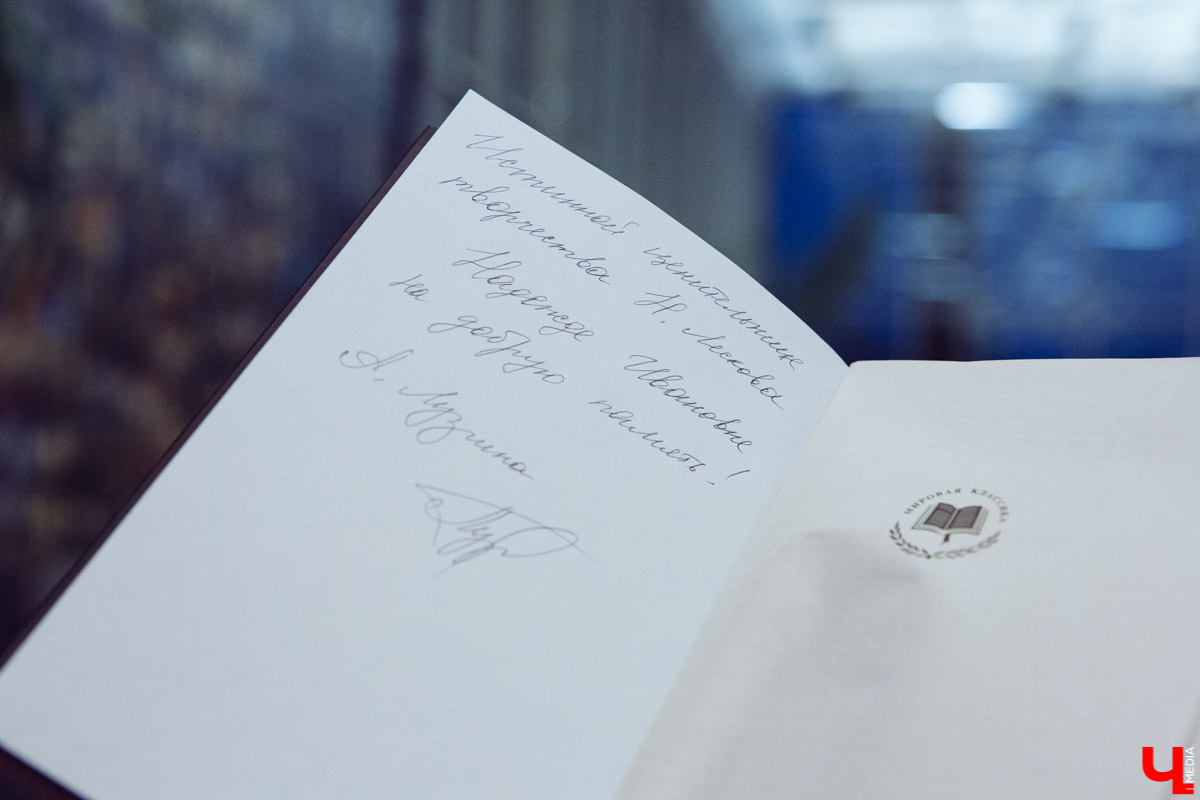 Истинной ценительнице
творчества Н. Лескова
Надежде Ивановне
на добрую память!
А. Лузгина
МИРОВАЯ КЛАССИКА
Ч MEDIA